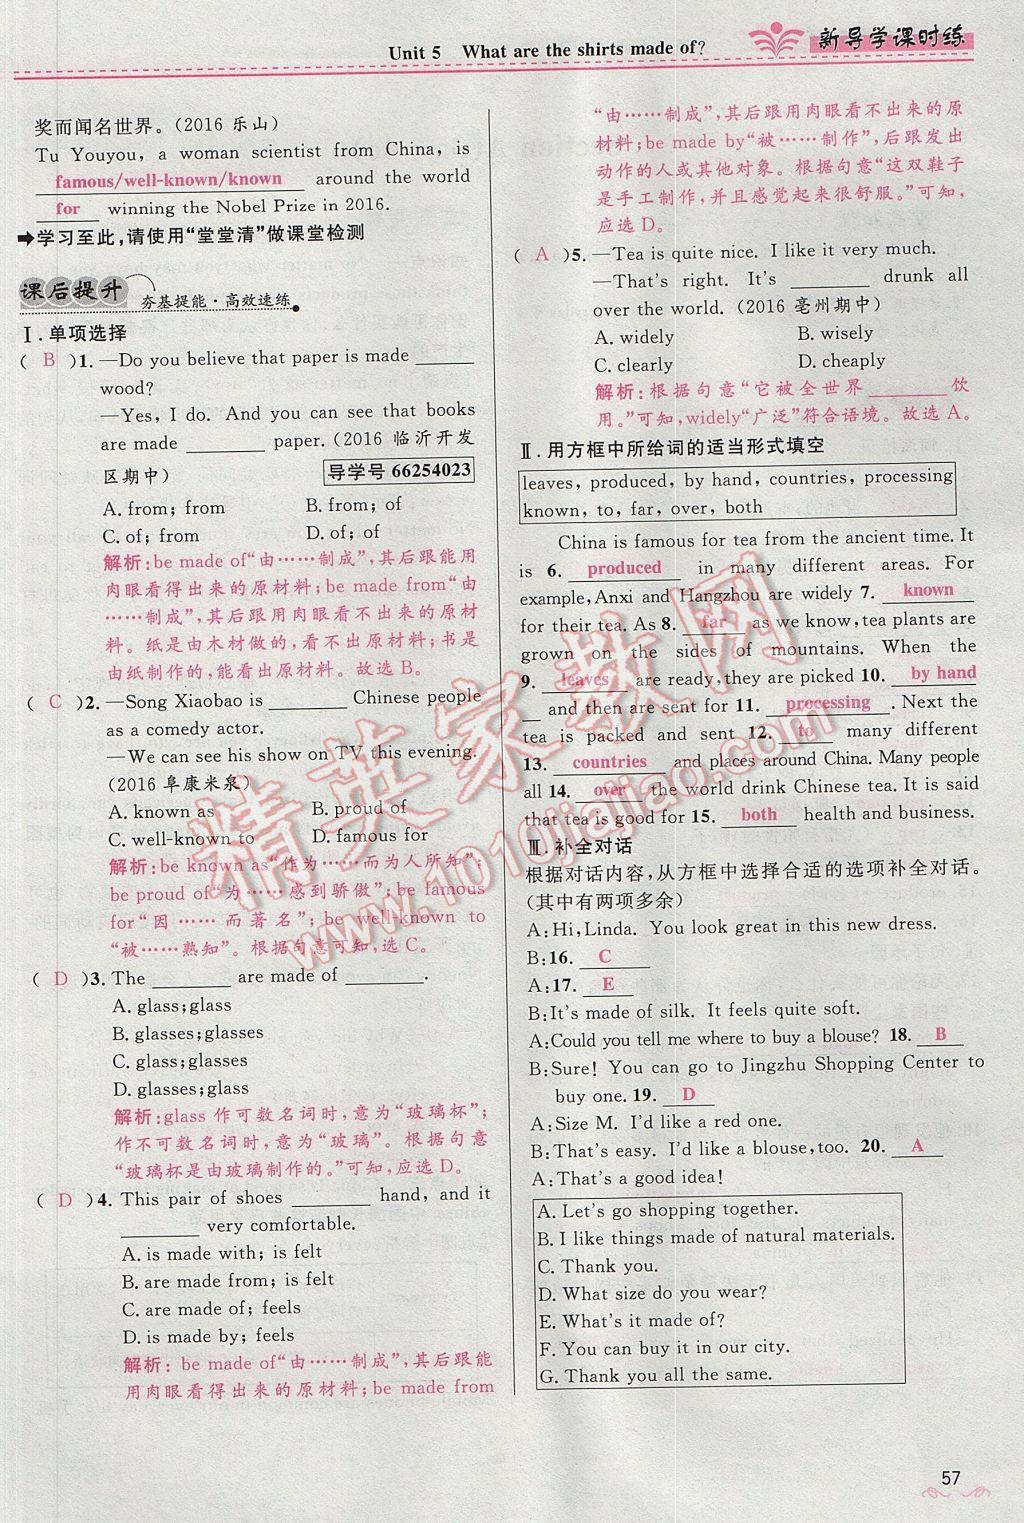 Unit 5 What are the shirts made of?
新导学课时练
奖而闻名世界。(2016 乐山)
Tu Youyou, a woman scientist from China, is
famous/well-known/known around the world
for winning the Nobel Prize in 2016.
➡学习至此,请使用“堂堂清”做课堂检测
课后提升 夯基提能·高效速练
Ⅰ.单项选择
( B )1. —Do you believe that paper is made ______
wood?
—Yes, I do. And you can see that books
are made ________ paper. (2016 临沂开发
区期中) 导学号 66254023
A. from; from B. from; of
C. of; from D. of; of
解析:be made of“由……制成”,其后跟能用
肉眼看得出来的原材料;be made from“由
……制成”,其后跟用肉眼看不出来的原材
料。纸是由木材做的,看不出原材料;书是
由纸制作的,能看出原材料。故选 B。
( C )2. —Song Xiaobao is ________ Chinese people
as a comedy actor.
—We can see his show on TV this evening.
(2016 阜康米泉)
A. known as B. proud of
C. well-known to D. famous for
解析:be known as“作为……而为人所知”;
be proud of“为……感到骄傲”;be famous
for“因……而著名”;be well-known to
“被……熟知”。根据句意可知,选 C。
( D )3. The ________ are made of ________.
A. glass;glass
B. glasses;glasses
C. glass;glasses
D. glasses;glass
解析:glass 作可数名词时,意为“玻璃杯”;
作不可数名词时,意为“玻璃”。根据句意
“玻璃杯是由玻璃制作的。”可知,应选 D。
( D )4. This pair of shoes ________ hand, and it
________ very comfortable.
A. is made with; is felt
B. are made from; is felt
C. are made of; feels
D. is made by; feels
解析: be made of“由……制成”,其后跟能
用肉眼看得出来的原材料;be made from
“由……制成”,其后跟用肉眼看不出来的原
材料;be made by“被……制作”,后跟发出
动作的人或其他对象。根据句意“这双鞋子
是手工制作,并且感觉起来很舒服。”可知,
应选 D。
( A )5. —Tea is quite nice. I like it very much.
—That's right. It's ________ drunk all
over the world. (2016 亳州期中)
A. widely B. wisely
C. clearly D. cheaply
解析:根据句意“它被全世界________饮
用。”可知,widely“广泛”符合语境。故选 A。
Ⅱ.用方框中所给词的适当形式填空
leaves, produced, by hand, countries, processing
known, to, far, over, both
China is famous for tea from the ancient time. It
is 6. produced in many different areas. For
example, Anxi and Hangzhou are widely 7. known
for their tea. As 8. far as we know, tea plants are
grown on the sides of mountains. When the
9. leaves are ready, they are picked 10. by hand
_ and then are sent for 11. processing. Next the
tea is packed and sent 12. to many different
13. countries and places around China. Many people
all 14. over the world drink Chinese tea. It is said
that tea is good for 15. both health and business.
Ⅲ.补全对话
根据对话内容,从方框中选择合适的选项补全对话。
(其中有两项多余)
A:Hi, Linda. You look great in this new dress.
B:16. C
A:17. E
B:It's made of silk. It feels quite soft.
A:Could you tell me where to buy a blouse? 18. B
B:Sure! You can go to Jingzhu Shopping Center to
buy one. 19. D
A:Size M. I'd like a red one.
B:That's easy. I'd like a blouse, too. 20. A
A:That's a good idea!
A. Let's go shopping together.
B. I like things made of natural materials.
C. Thank you.
D. What size do you wear?
E. What's it made of?
F. You can buy it in our city.
G. Thank you all the same.
精英家教网
www.1010jiajiao.com
57